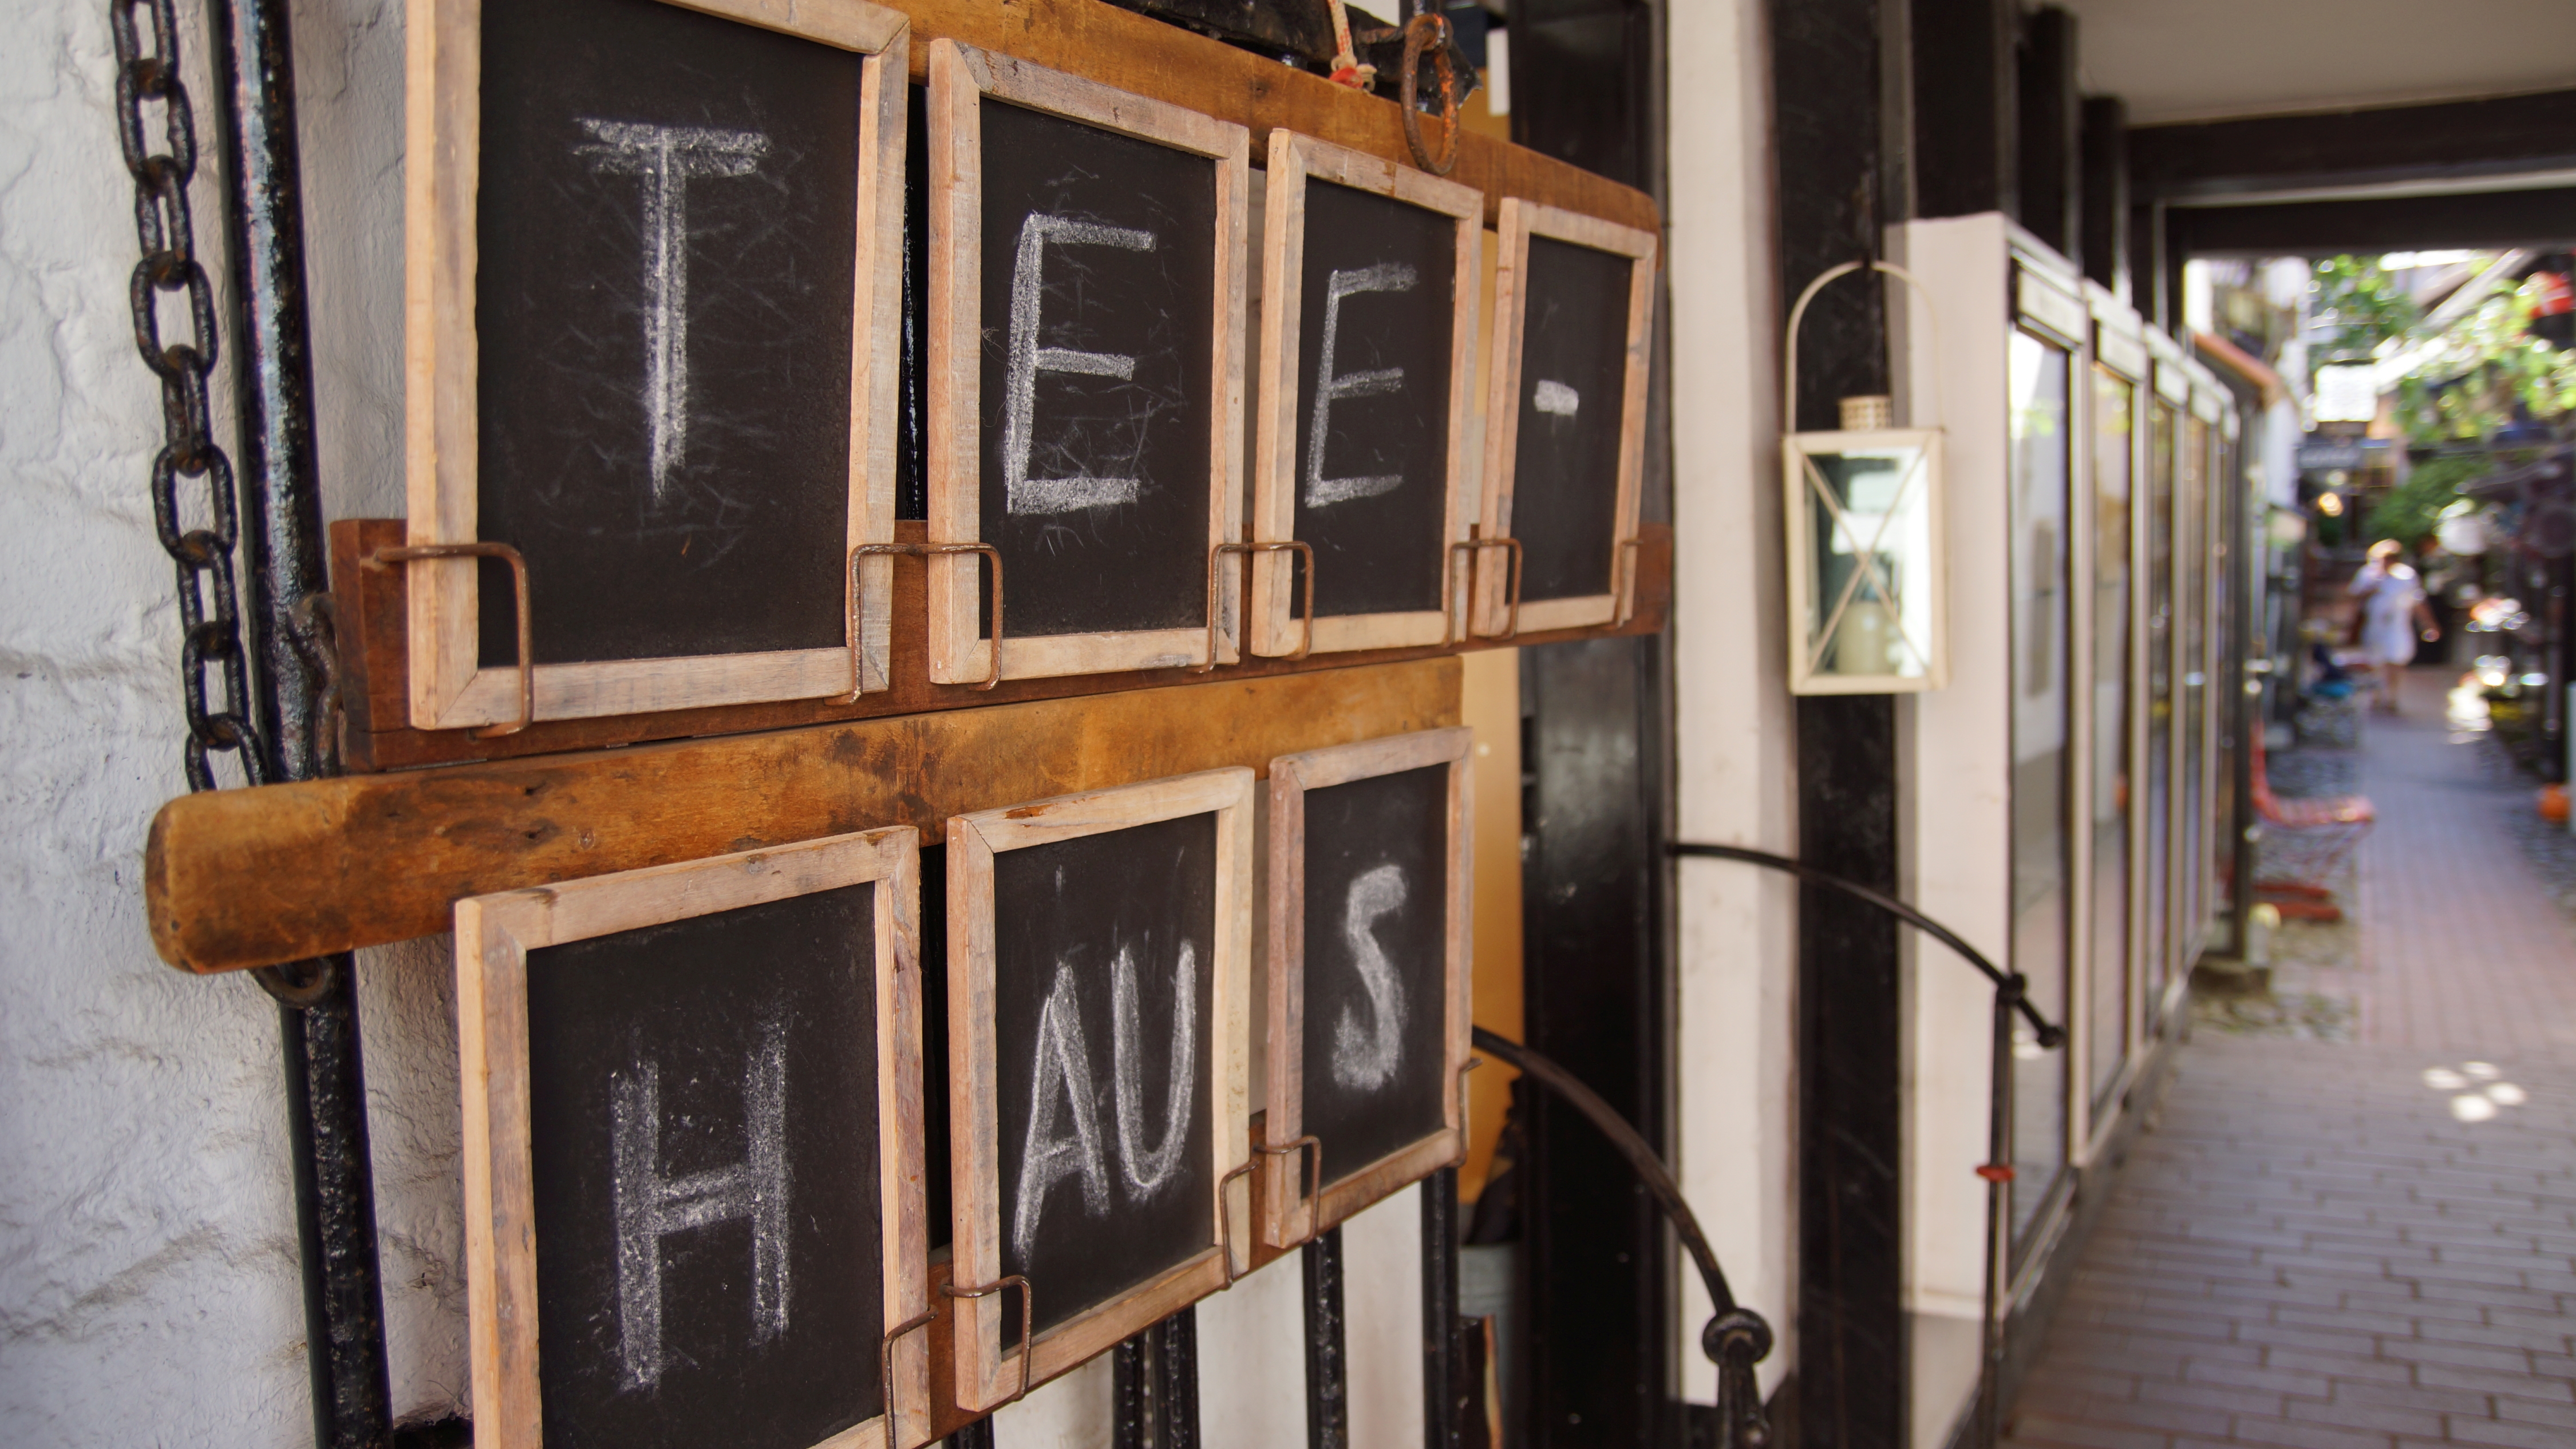 TEE-
HAUS